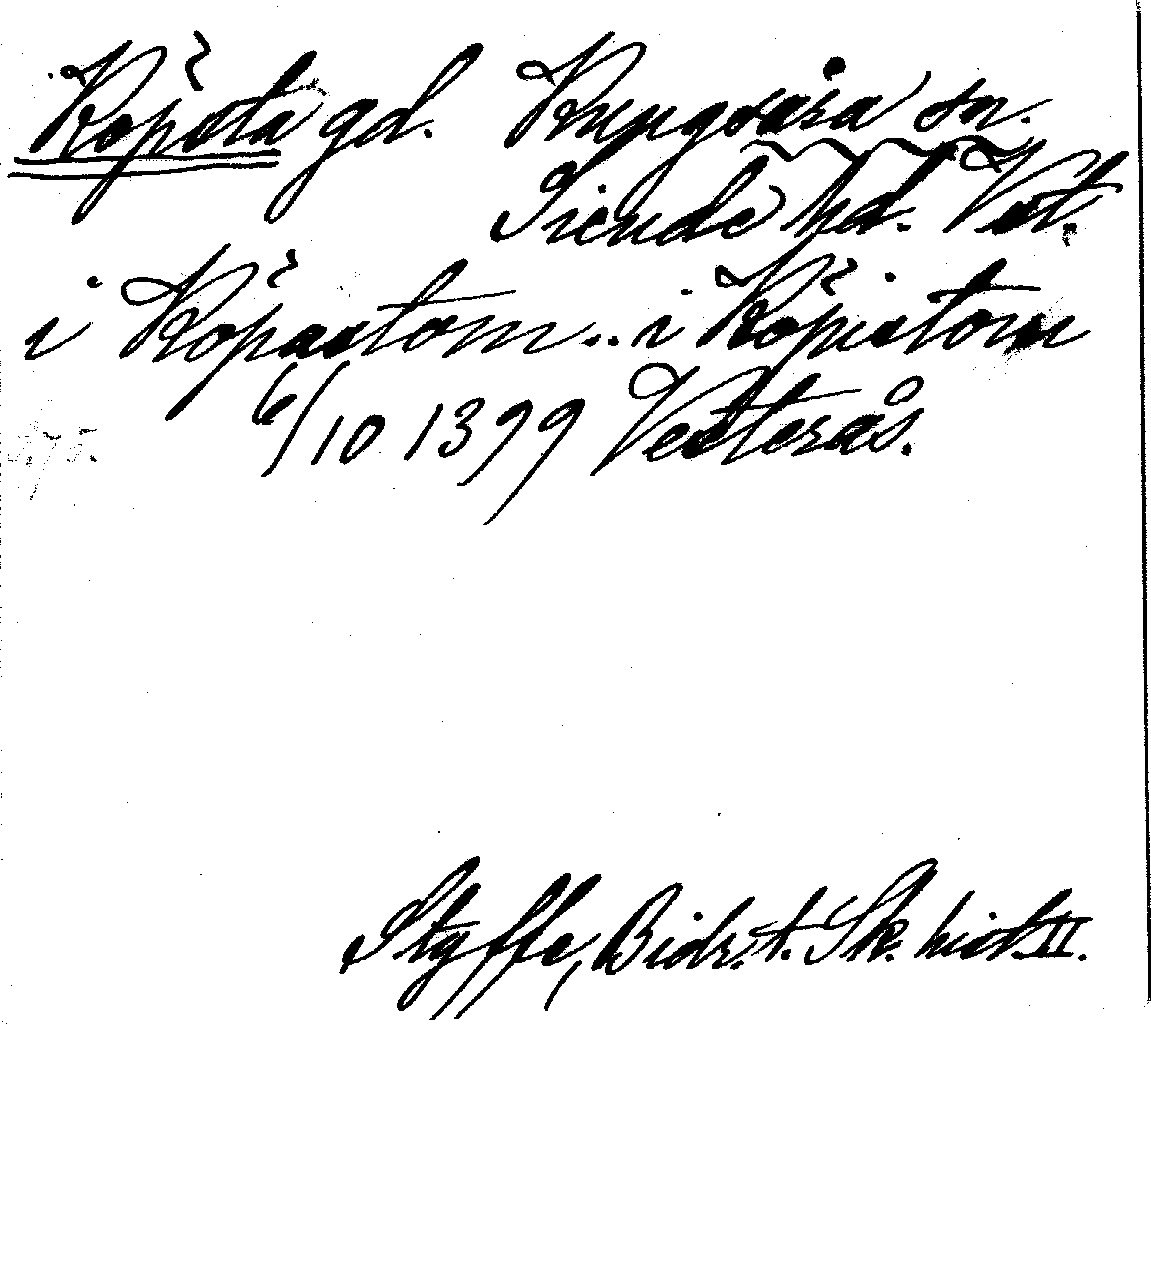 Köpsta gd. Kungsåra sn.
Siende hd. Vst.
i Köpastom .. i Köpistom
6/10 1399 Vesterås.
Styffe, Bidr. t. Sk. hist. II.